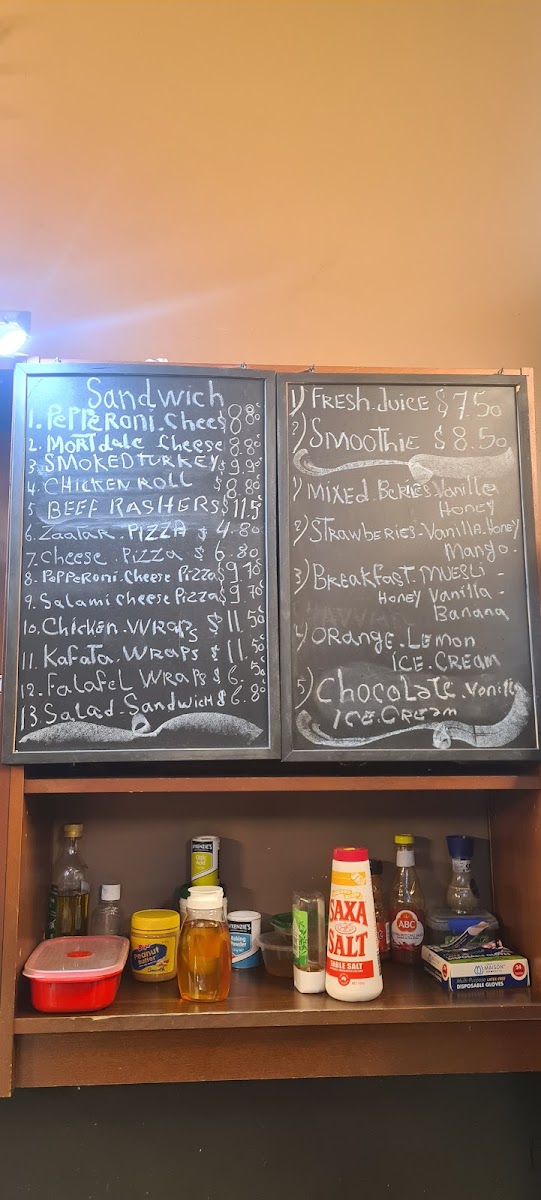 Sandwich
1. PePPeRoni. Chees $ 8.80
2. MoRTdale Cheese 8.80
3. SMOKED TURKEY. $ 9.90
4. CHICKEN ROLL $ 8.80
5 BEEF RASHERS $ 11.5
6. Zaatar. PIZZA $ 4.80
7. Cheese. PIZZA $ 6.80
8. PePPeroni. Cheese Pizza $ 9.70
9. Salami Cheese Pizza $ 9.70
10. Chicken. WRaPs $ 11.50
11. Kafata. WRaPs $ 11.50
12. Falafel WRaPs $ 6.50
13. Salad. SandwicH $ 6.80
1) FRESH. Juice $ 7.50
2) SMOOTHIE $ 8.50
1) MIXED. BeRIes. Vanille
Honey
2) STRawberies. VanIlla. Honey
Mango.
3) BReakFasT. MUESLi -
Honey Vanilla -
Banana
4) ORange. Lemon
ICE. CREAM
5) ChocoLaTe. Vanille
ICE. CReam
Peanut
Butter
Baking
Powder
SAXA
SALT
TABLE SALT
ABC
MAISON
DISPOSABLE GLOVES